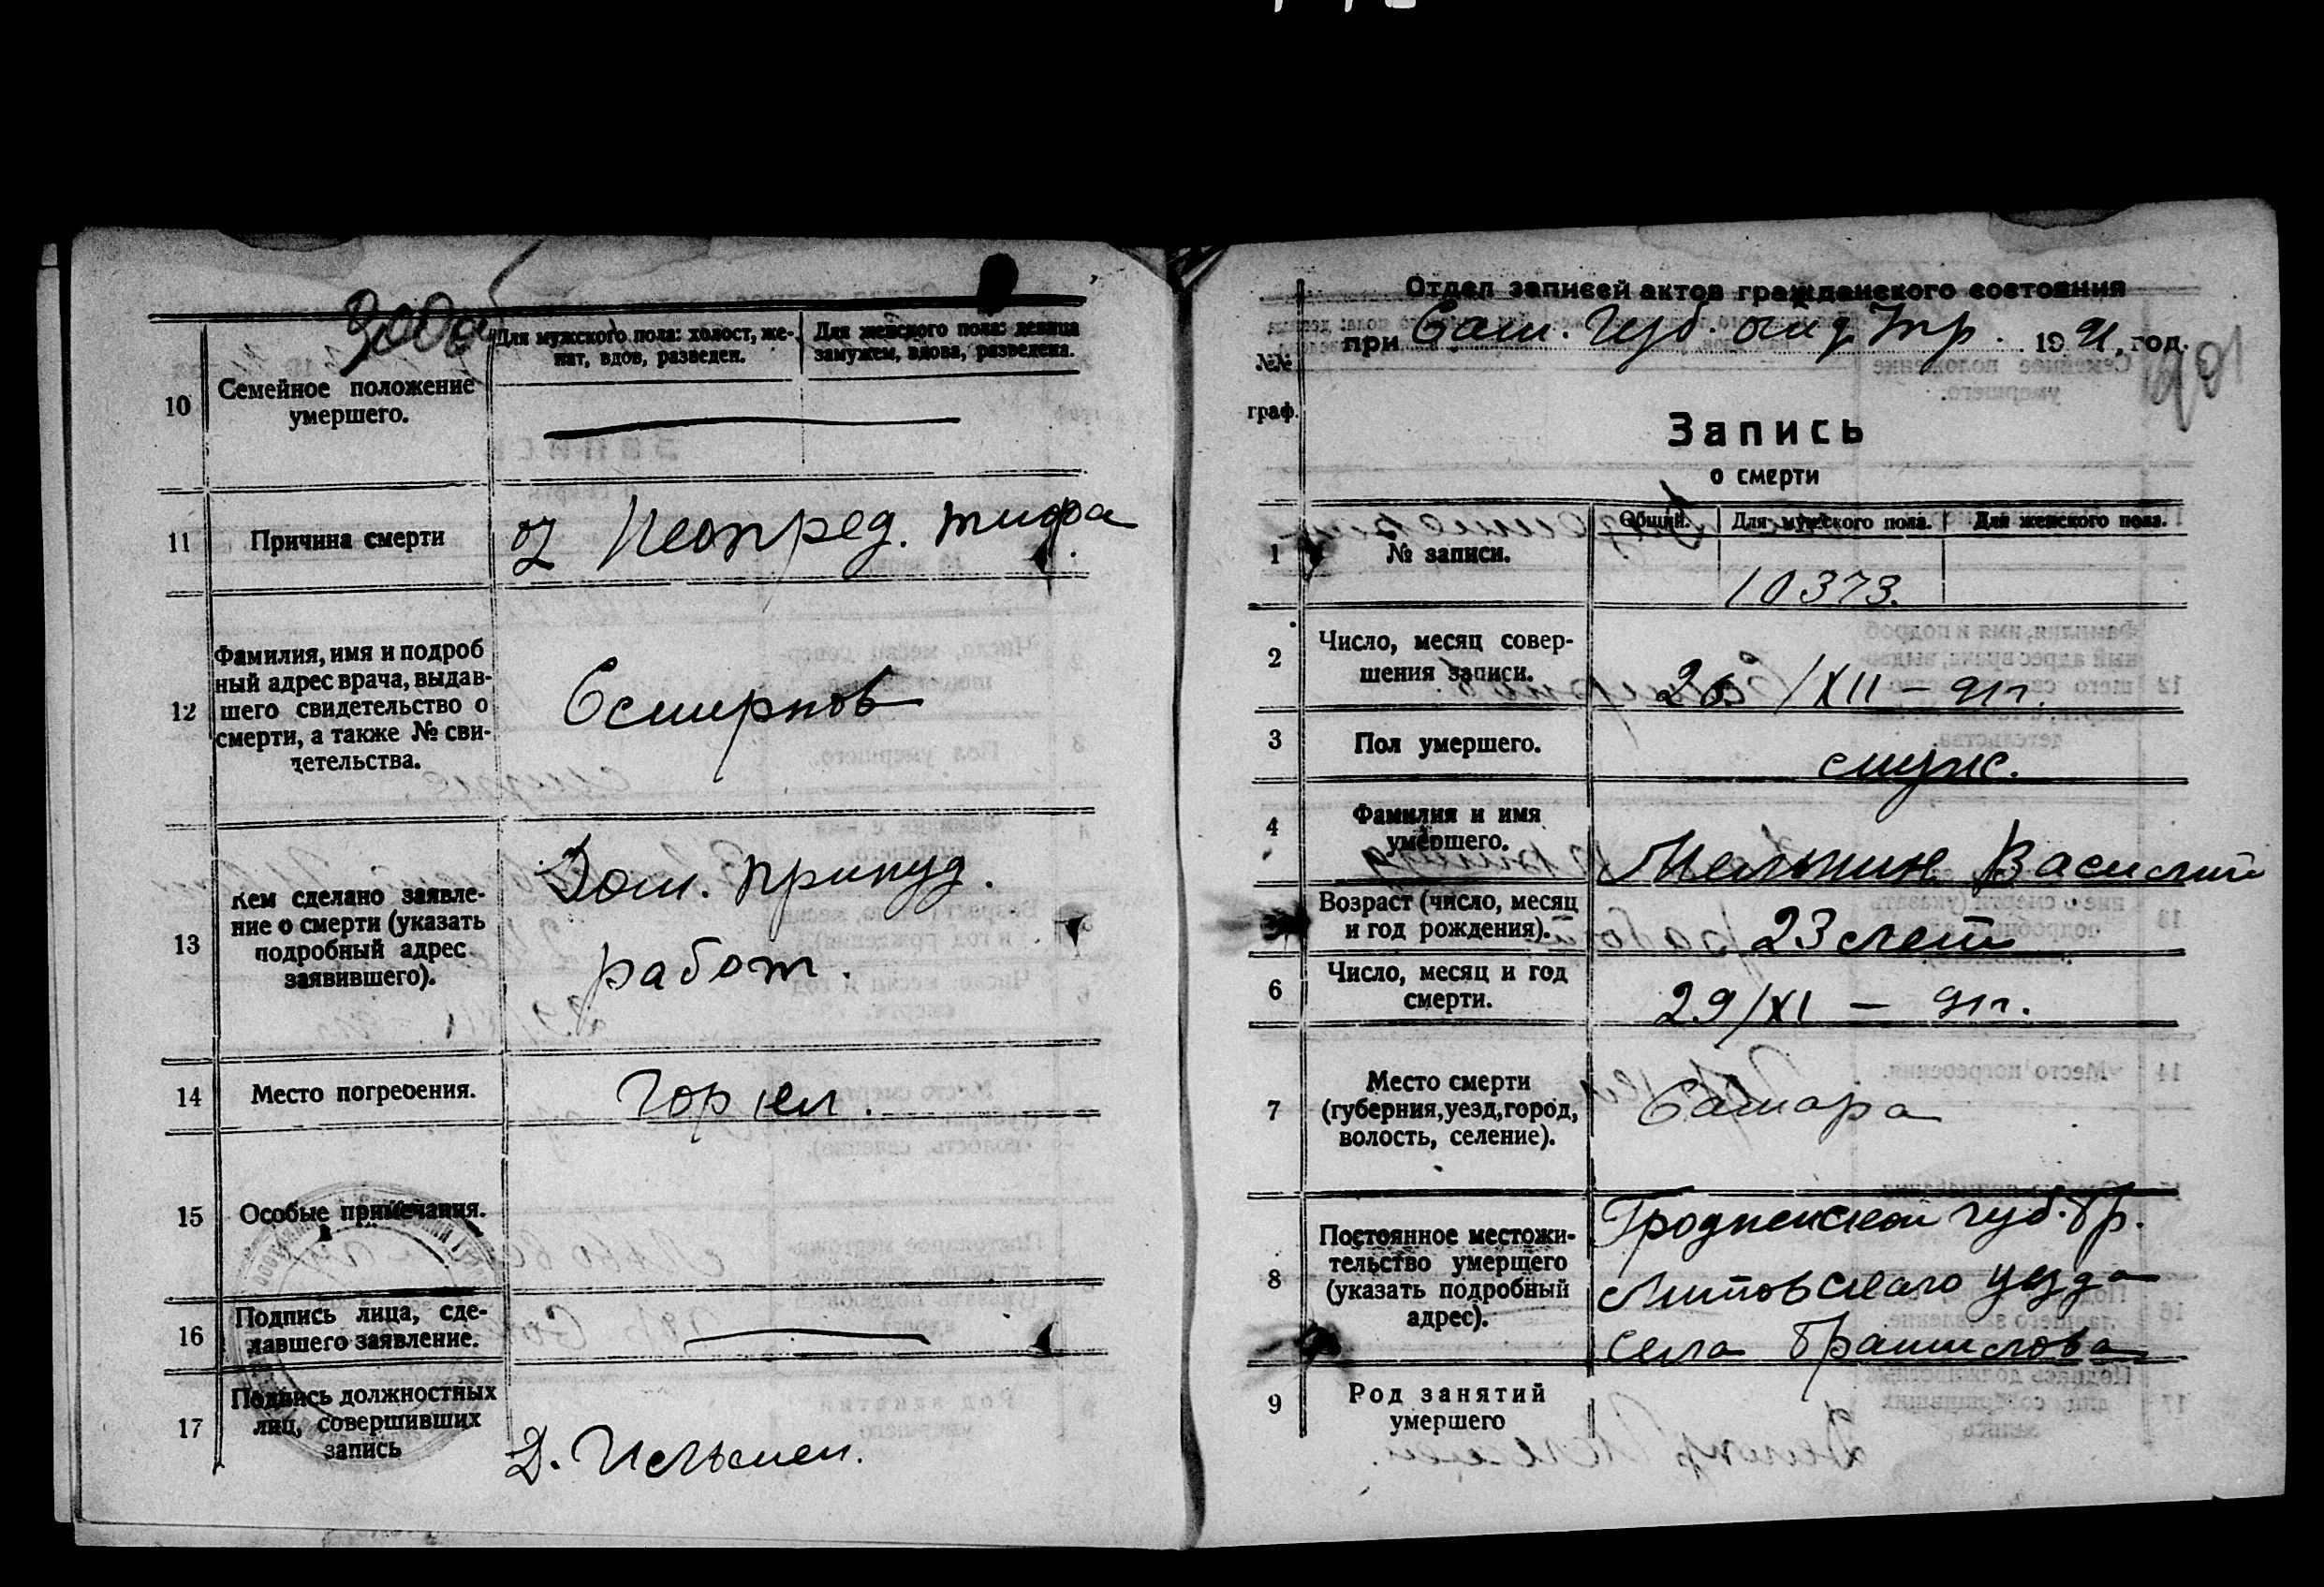 10
Семейное положение
умершего.
Для мужского пола: холост, же-
нат, вдов, разведен.
Для женского пола: девица
замужем, вдова, разведена.
11
Причина смерти
от Неопред. тифа
12
Фамилия, имя и подроб
ный адрес врача, выдав-
шего свидетельство о
смерти, а также № сви-
детельства.
Смирнов
13
Кем сделано заявле-
ние о смерти (указать
подробный адрес
заявившего).
Дом. принуд.
работ.
14
Место погребения.
Гор
15
Особые примечания.
16
Подпись лица, сде-
лавшего заявление.
17
Подпись должностных
лиц, совершивших
запись
Д.
Отдел записей актов гражданского состояния
при Сам. Губ. отд 1921, год.
№№
граф.
Запись
о смерти
1
№ записи.
Общий.
Для мужского пола.
Для женского пола.
10373.
2
Число, месяц совер-
шения записи.
/XII – 21г.
3
Пол умершего.
муж.
4
Фамилия и имя
умершего.
Василий
5
Возраст (число, месяц
и год рождения).
23 лет
6
Число, месяц и год
смерти.
29/XI – 21г.
7
Место смерти
(губерния, уезд, город,
волость, селение).
Самара
8
Постоянное местожи-
тельство умершего
(указать подробный
адрес).
Гродненской губ. Бр.
Литовского уезда
села
9
Род занятий
умершего